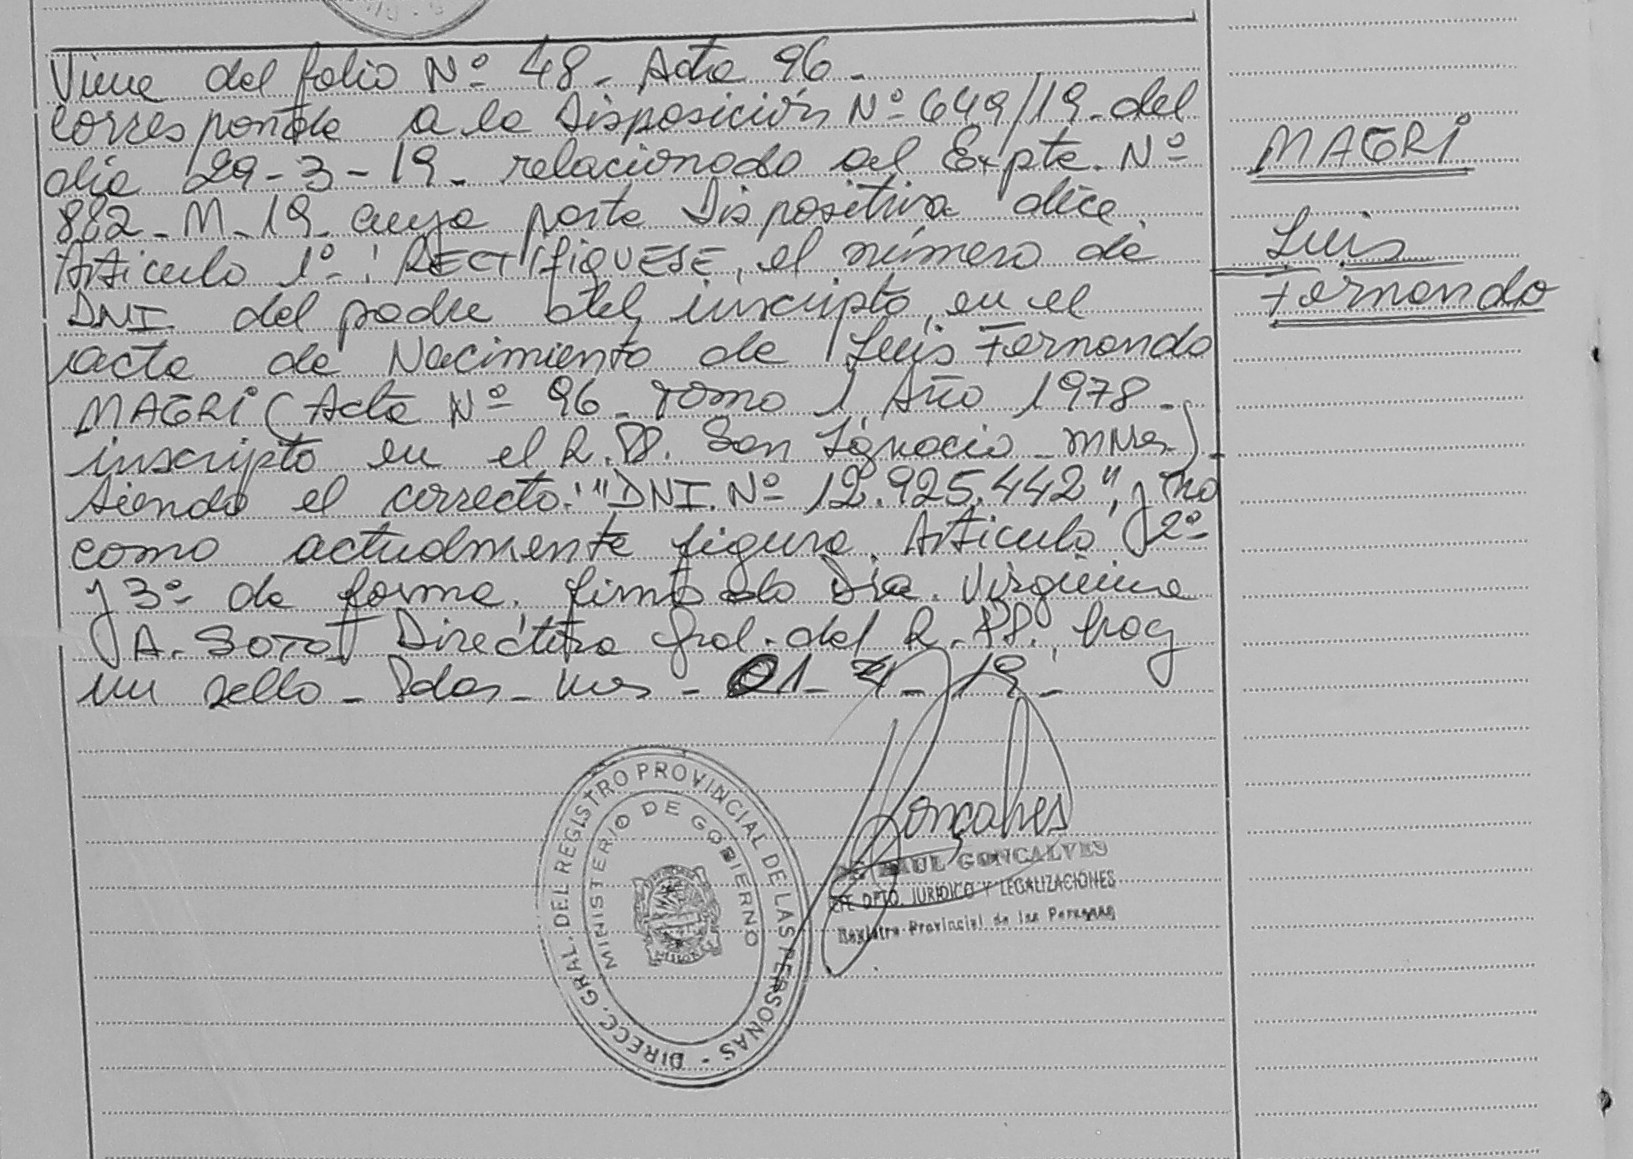 Viene del folio Nº 48 - Acta 96 -
Corresponde a la Disposición Nº 649/19 - del
día 29-3-19 - relacionado al Expte. Nº
882 - M - 19 - cuya parte Dispositiva dice
Articulo 1º - : RECTIFIQUESE, el número de
DNI del padre del inscripto, en el
acta de Nacimiento de Luis Fernando
MAGRI (Acta Nº 96 - Tomo 1 Año 1978 -
inscripto en el R.PP. San Ignacio - Mnes) -
siendo el correcto: "DNI. Nº 12.925.442", y no
como actualmente figura. Articulo 2º
y 3º de forma. firmado Dra. Virginia
A. SOTO Directora Gral. del R.PP. hay
un sello - Pdas - Mes - 01 - 4 - 19 -
MAGRI
Luis
Fernando
DIRECC. GRAL. DEL REGISTRO PROVINCIAL DE LAS PERSONAS -
MINISTERIO DE GOBIERNO
Goncalves
RAUL GONCALVES
JEFE DPTO. JURIDICO Y LEGALIZACIONES
Registro Provincial de las Personas